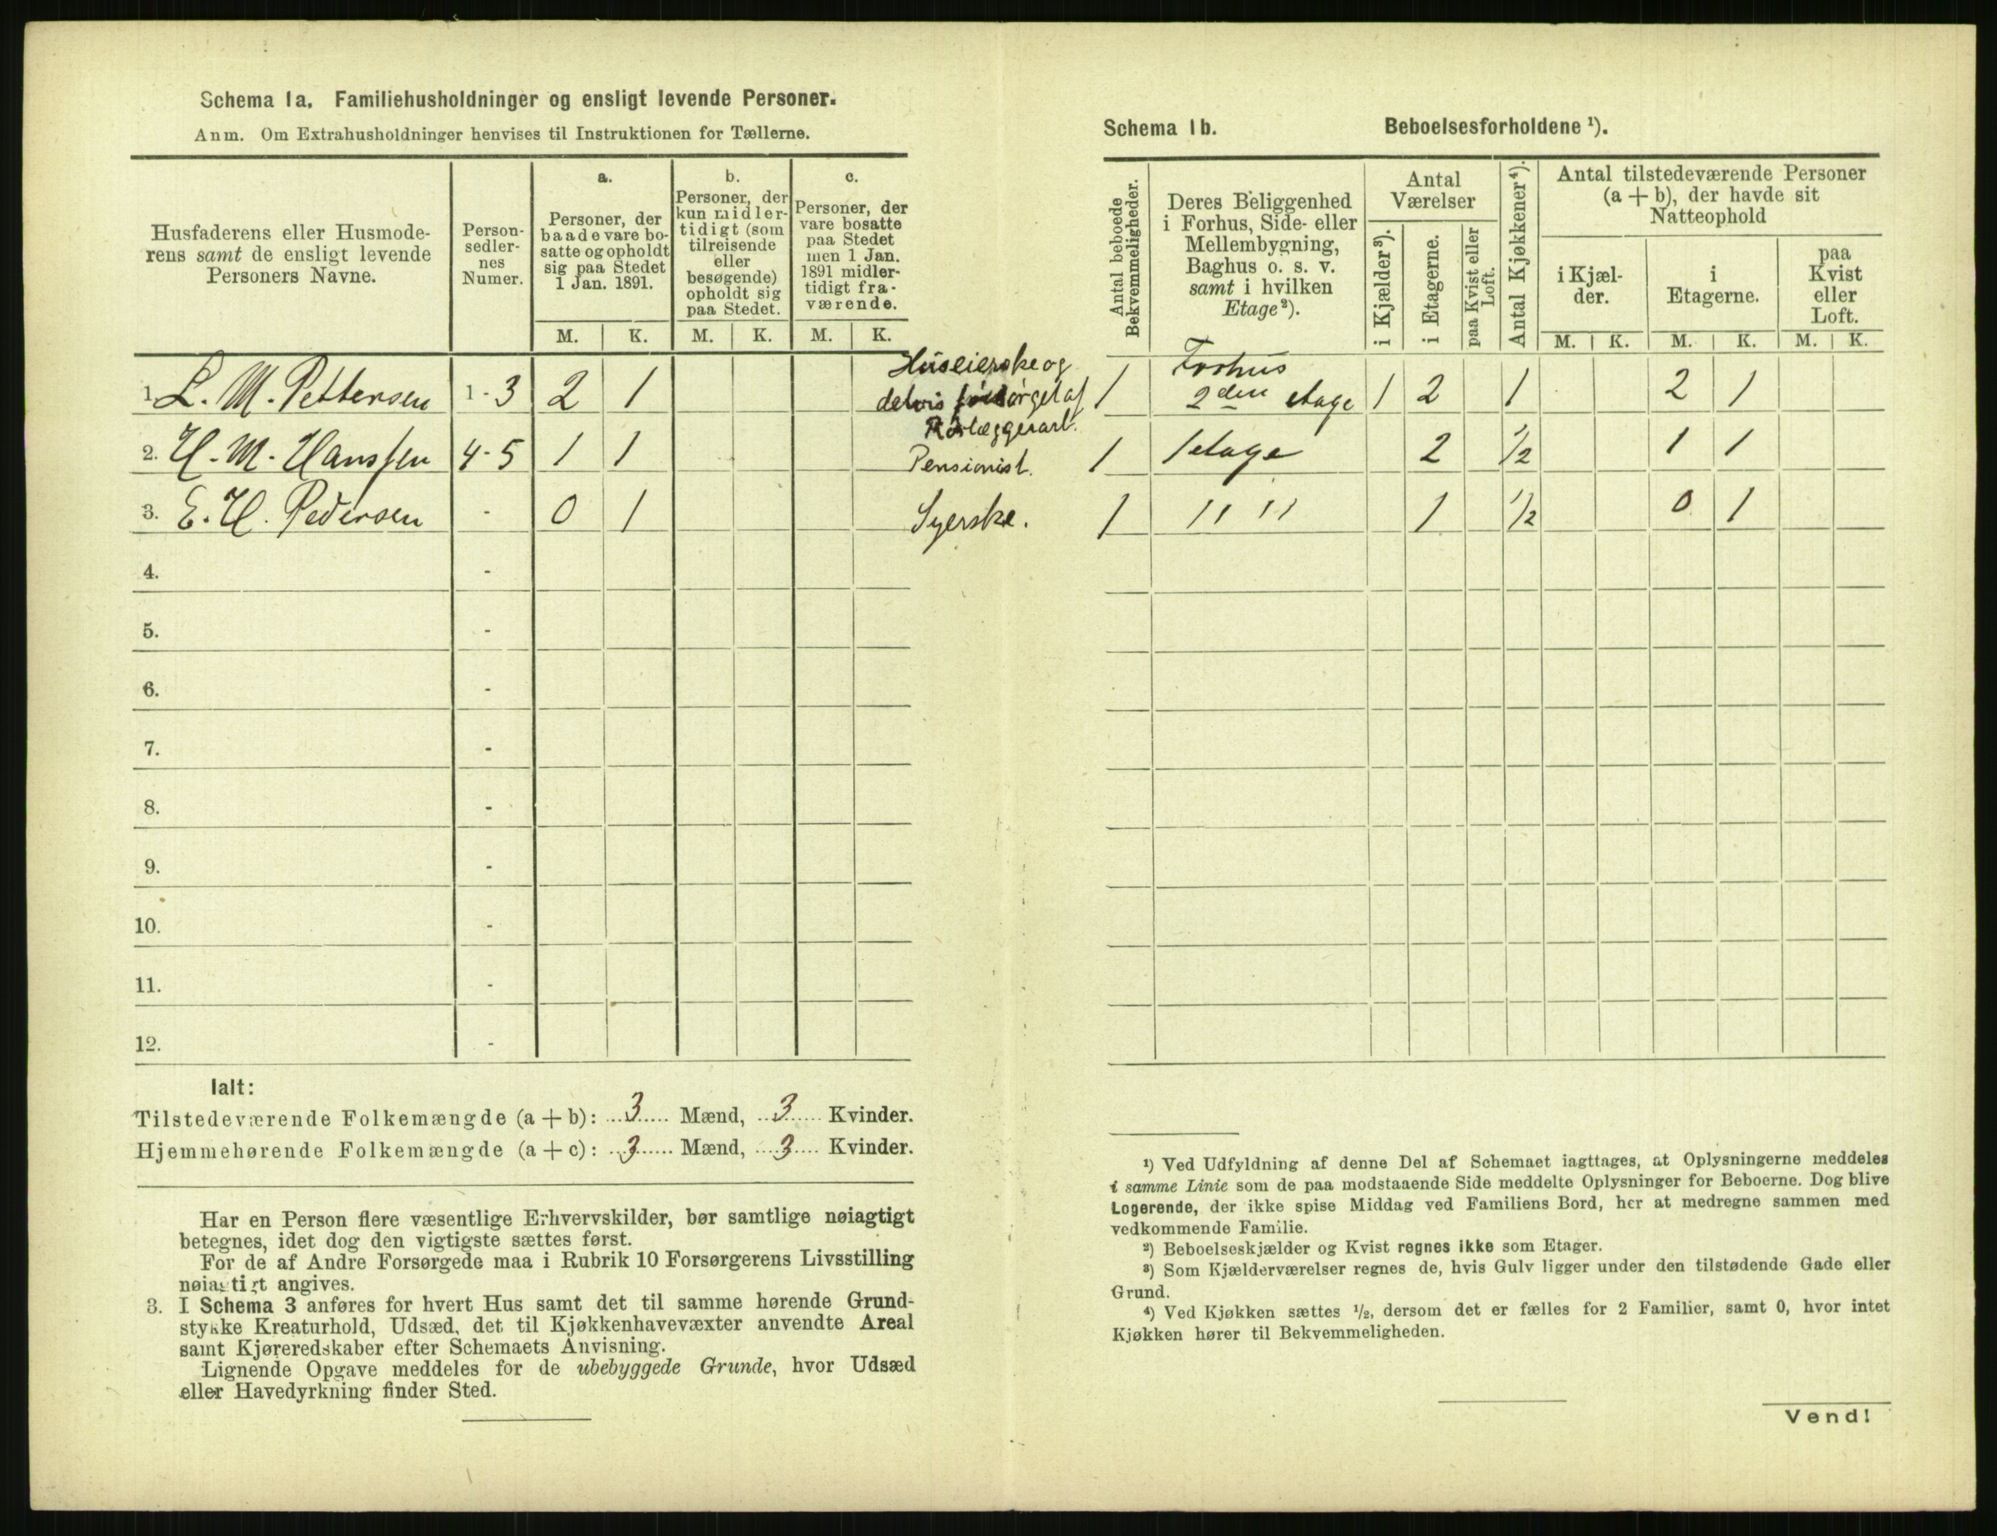 Schema 1a. Familiehusholdninger og ensligt levende Personer.
Anm. Om Extrahusholdninger henvises til Instruktionen for Tællerne.
Husfaderens eller Husmode-
rens samt de ensligt levende
Personers Navne.
Person-
sedler-
nes
Numer.
a.
Personer, der
baade vare bo-
satte og opholdt
sig paa Stedet
1 Jan. 1891.
b.
Personer, der
kun midler-
tidigt (som
tilreisende
eller
besøgende)
opholdt sig
paa Stedet.
c.
Personer, der
vare bosatte
paa Stedet
men 1 Jan.
1891 midler-
tidigt fra-
værende.
M. K. M. K. M. K.
1. L. M. Pettersen 1 - 3 2 1
Huseierske og
delvis forsørget af
Rørlæggerarb.
2. H. M. Hanssen 4 - 5 1 1 Pensionist.
3. E. H. Pedersen - 0 1 Syerske.
4. -
5. -
6. -
7. -
8. -
9. -
10. -
11. -
12. -
Ialt:
Tilstedeværende Folkemængde (a + b): 3 Mænd, 3 Kvinder.
Hjemmehørende Folkemængde (a + c): 3 Mænd, 3 Kvinder.
Har en Person flere væsentlige Erhvervskilder, bør samtlige nøiagtigt
betegnes, idet dog den vigtigste sættes først.
For de af Andre Forsørgede maa i Rubrik 10 Forsørgerens Livsstilling
nøiagtigt angives.
3. I Schema 3 anføres for hvert Hus samt det til samme hørende Grund-
stykke Kreaturhold, Udsæd, det til Kjøkkenhavevæxter anvendte Areal
samt Kjøreredskaber efter Schemaets Anvisning.
Lignende Opgave meddeles for de ubebyggede Grunde, hvor Udsæd
eller Havedyrkning finder Sted.
Schema 1b. Beboelsesforholdene ¹).
Antal beboede
Bekvemmeligheder.
Deres Beliggenhed
i Forhus, Side- eller
Mellembygning,
Baghus o. s. v.
samt i hvilken
Etage ²).
Antal
Værelser
i Kjælder ³).
i Etagerne.
paa Kvist eller
Loft.
Antal Kjøkkener ⁴).
Antal tilstedeværende Personer
(a + b), der havde sit
Natteophold
i Kjæl-
der.
i
Etagerne.
paa
Kvist
eller
Loft.
M. K. M. K. M. K.
Forhus
1 2den etage 1 2 1 2 1
1 1 etage 2 1/2 1 1
1 " " 1 1/2 0 1
¹) Ved Udfyldning af denne Del af Schemaet iagttages, at Oplysningerne meddeles
i samme Linie som de paa modstaaende Side meddelte Oplysninger for Beboerne. Dog blive
Logerende, der ikke spise Middag ved Familiens Bord, her at medregne sammen med
vedkommende Familie.
²) Beboelseskjælder og Kvist regnes ikke som Etager.
³) Som Kjælderværelser regnes de, hvis Gulv ligger under den tilstødende Gade eller
Grund.
⁴) Ved Kjøkken sættes ½, dersom det er fælles for 2 Familier, samt 0, hvor intet
Kjøkken hører til Bekvemmeligheden.
Vend!